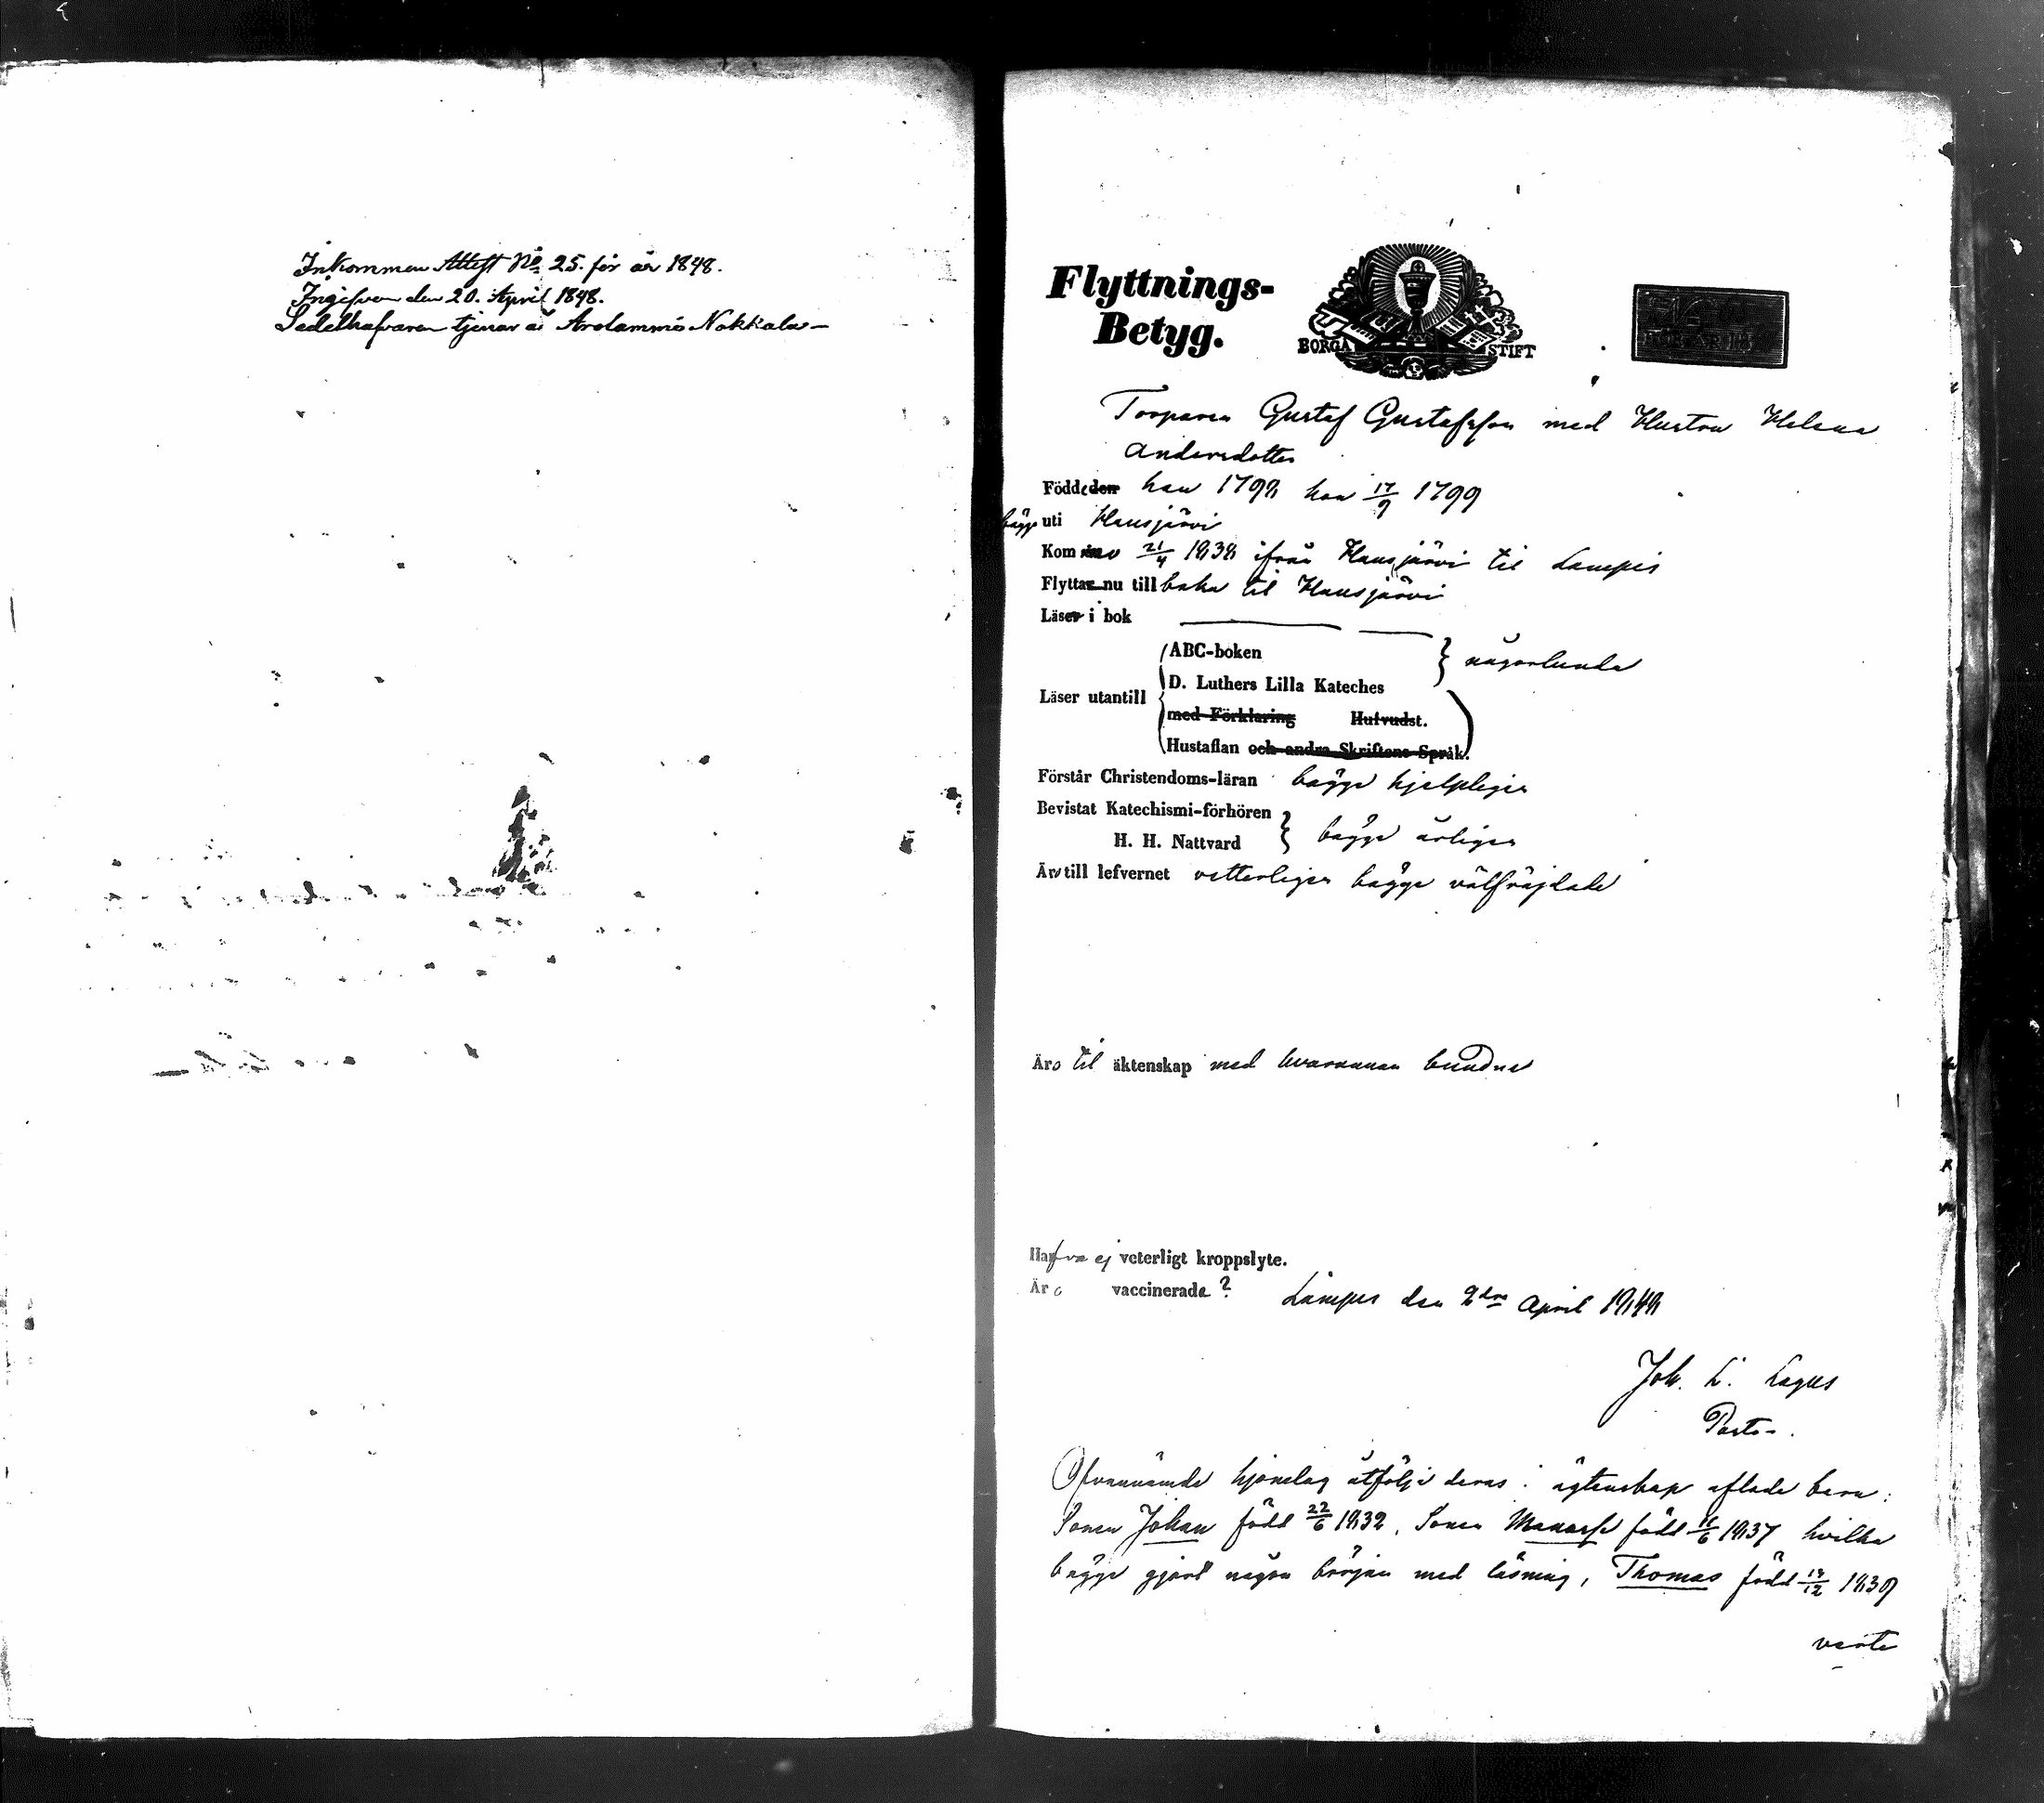 Inkommen Attest No 25. för år 1848.
Ingifven den 20. April 1848.
Sedelhafvaren tjenar å Arolammi Nokkala –
Flyttnings-
Betyg.
BORGÅ STIFT
Torparen Gustaf Gustafsson med Hustru Helena
Andersdotter
Födde den han 1798 hon 17/9 1799
bägge uti Hausjärvi
Kommo 21/4 1838 ifrån Hausjärvi til Lampis
Flyttar nu tillbaka til Hausjärvi
Läser i bok
ABC-boken
D. Luthers Lilla Kateches
någorlunda
Läser utantill
med Förklaring Hufvudst.
Hustaflan och andra Skriftens Språk.
Förstår Christendoms-läran bägge hjelpligen
Bevistat Katechismi-förhören
H. H. Nattvard
bägge årligen
Äro till lefvernet vetterligen bägge välfräjdade
Äro til äktenskap med hvarannan bundne
Hafva ej veterligt kroppslyte.
Äro vaccinerade?
Lampis den 2dra April 1848
Joh. L. Lagus
Pastor.
Ofvannämnde hjonelag åtfölja deras i ägtenskap aflade barn:
Sonen Johan född 22/6 1832, Sonen Manasse född /6 1837 hvilka
bägge gjort någon början med läsning, Thomas född /12 1839
verte